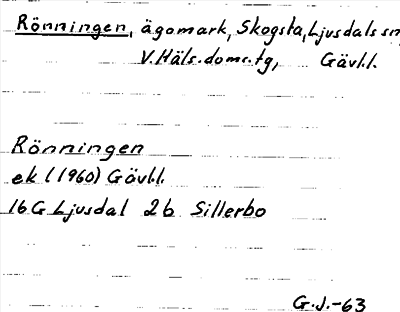 Rönningen, ägomark, Skogsta, Ljusdals sn,
V. Häls. doms.tg, Gävl.l.
Rönningen
ek (1960) Gävl.l.
16G Ljusdal 2b Sillerbo
G.J.-63